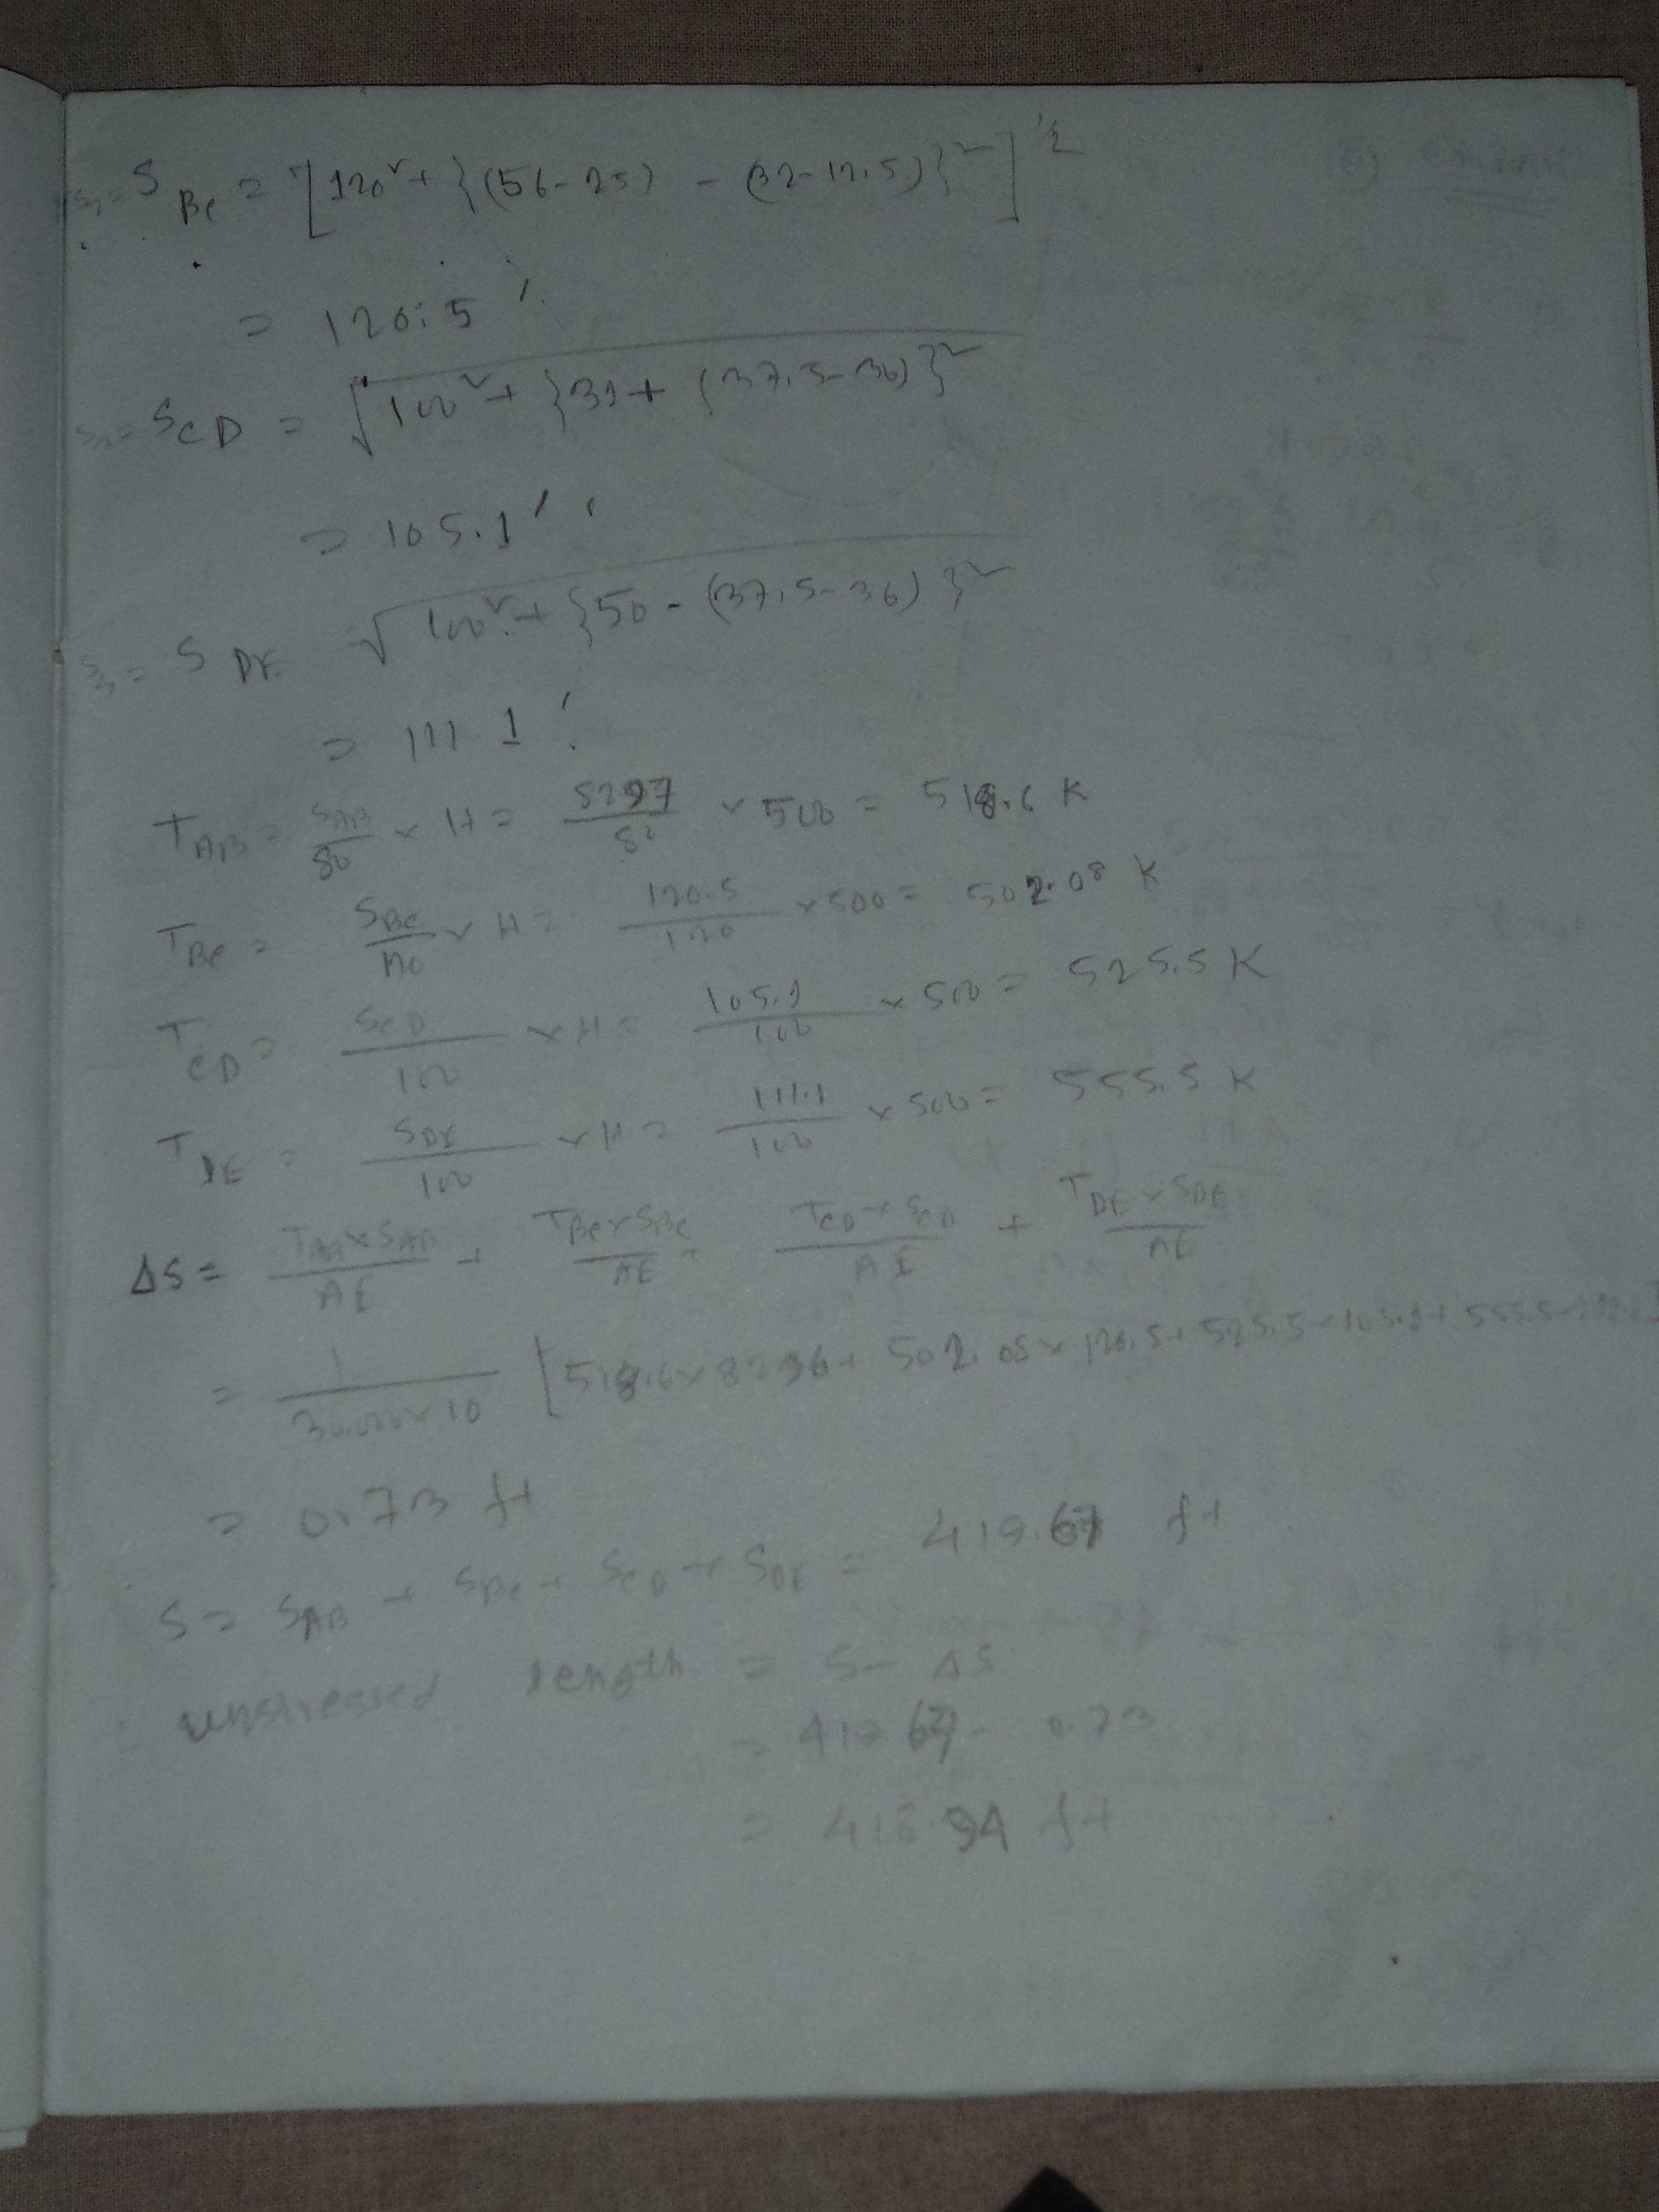 S₁ = S_BC = [120² + {(56-25) - (32-12.5)}²]^½
= 120.5'
S₂ = S_CD = √(100² + {31 + (37.5-36)}²)
= 105.1'
S₃ = S_DE = √(100² + {50 - (37.5-36)}²)
= 111.1'
T_AB = S_AB/80 × H = 82.97/80 × 500 = 518.6 K
T_BC = S_BC/120 × H = 120.5/120 × 500 = 502.08 K
T_CD = S_CD/100 × H = 105.1/100 × 500 = 525.5 K
T_DE = S_DE/100 × H = 111.1/100 × 500 = 555.5 K
ΔS = T_AB × S_AB/AE + T_BC × S_BC/AE + T_CD × S_CD/AE + T_DE × S_DE/AE
= 1/30,000×10 [518.6 × 82.96 + 502.08 × 120.5 + 525.5 × 105.1 + 555.5 ×
= 0.73 ft
S = S_AB + S_BC + S_CD + S_DE = 419.67 ft
unstressed length = S - ΔS
= 419.67 - 0.73
= 418.94 ft